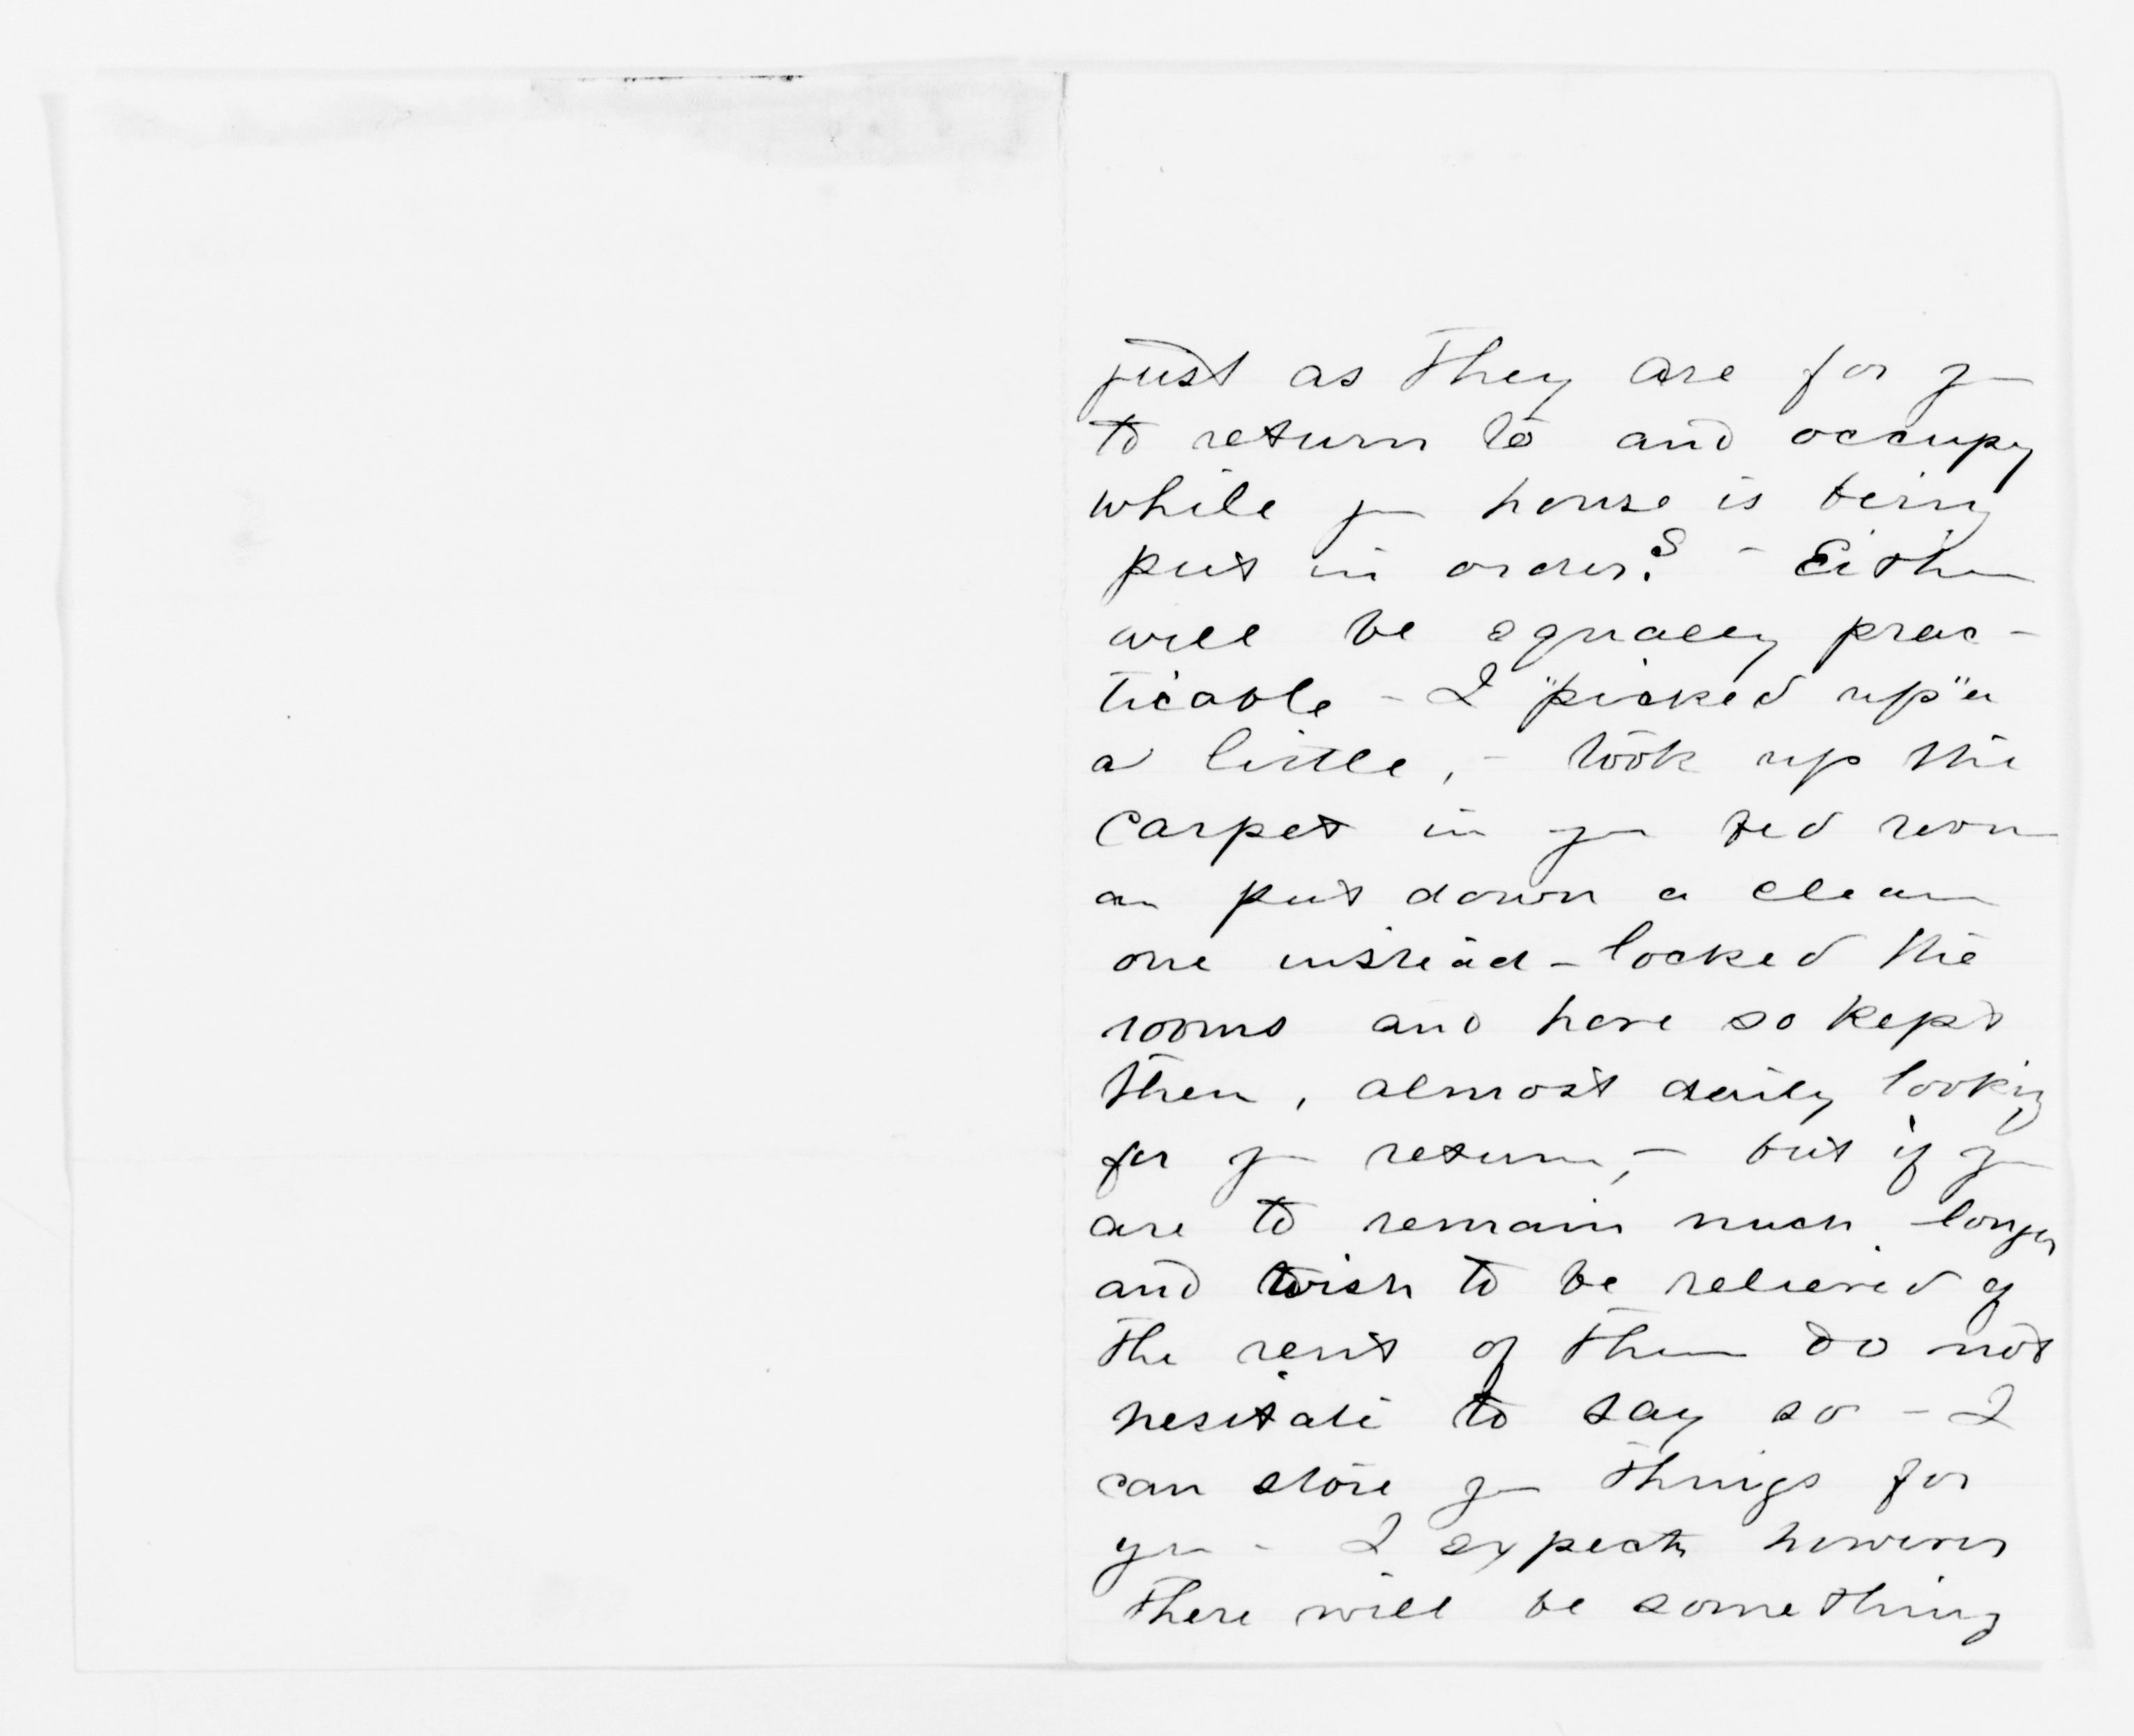 just as they are for you
to return to and occupy
while your house is being
put in order? - Either
will be equally prac-
ticable - I "picked up" a
a little, - took up the
carpet in your bed room
an put down a clean
one instead - locked the
rooms and have so kept
them, almost daily looking
for your return, - but if you
are to remain much longer
and wish to be relieved of
the rent of them do not
hesitate to say so - I
can store your things for
you - I expect however
there will be something